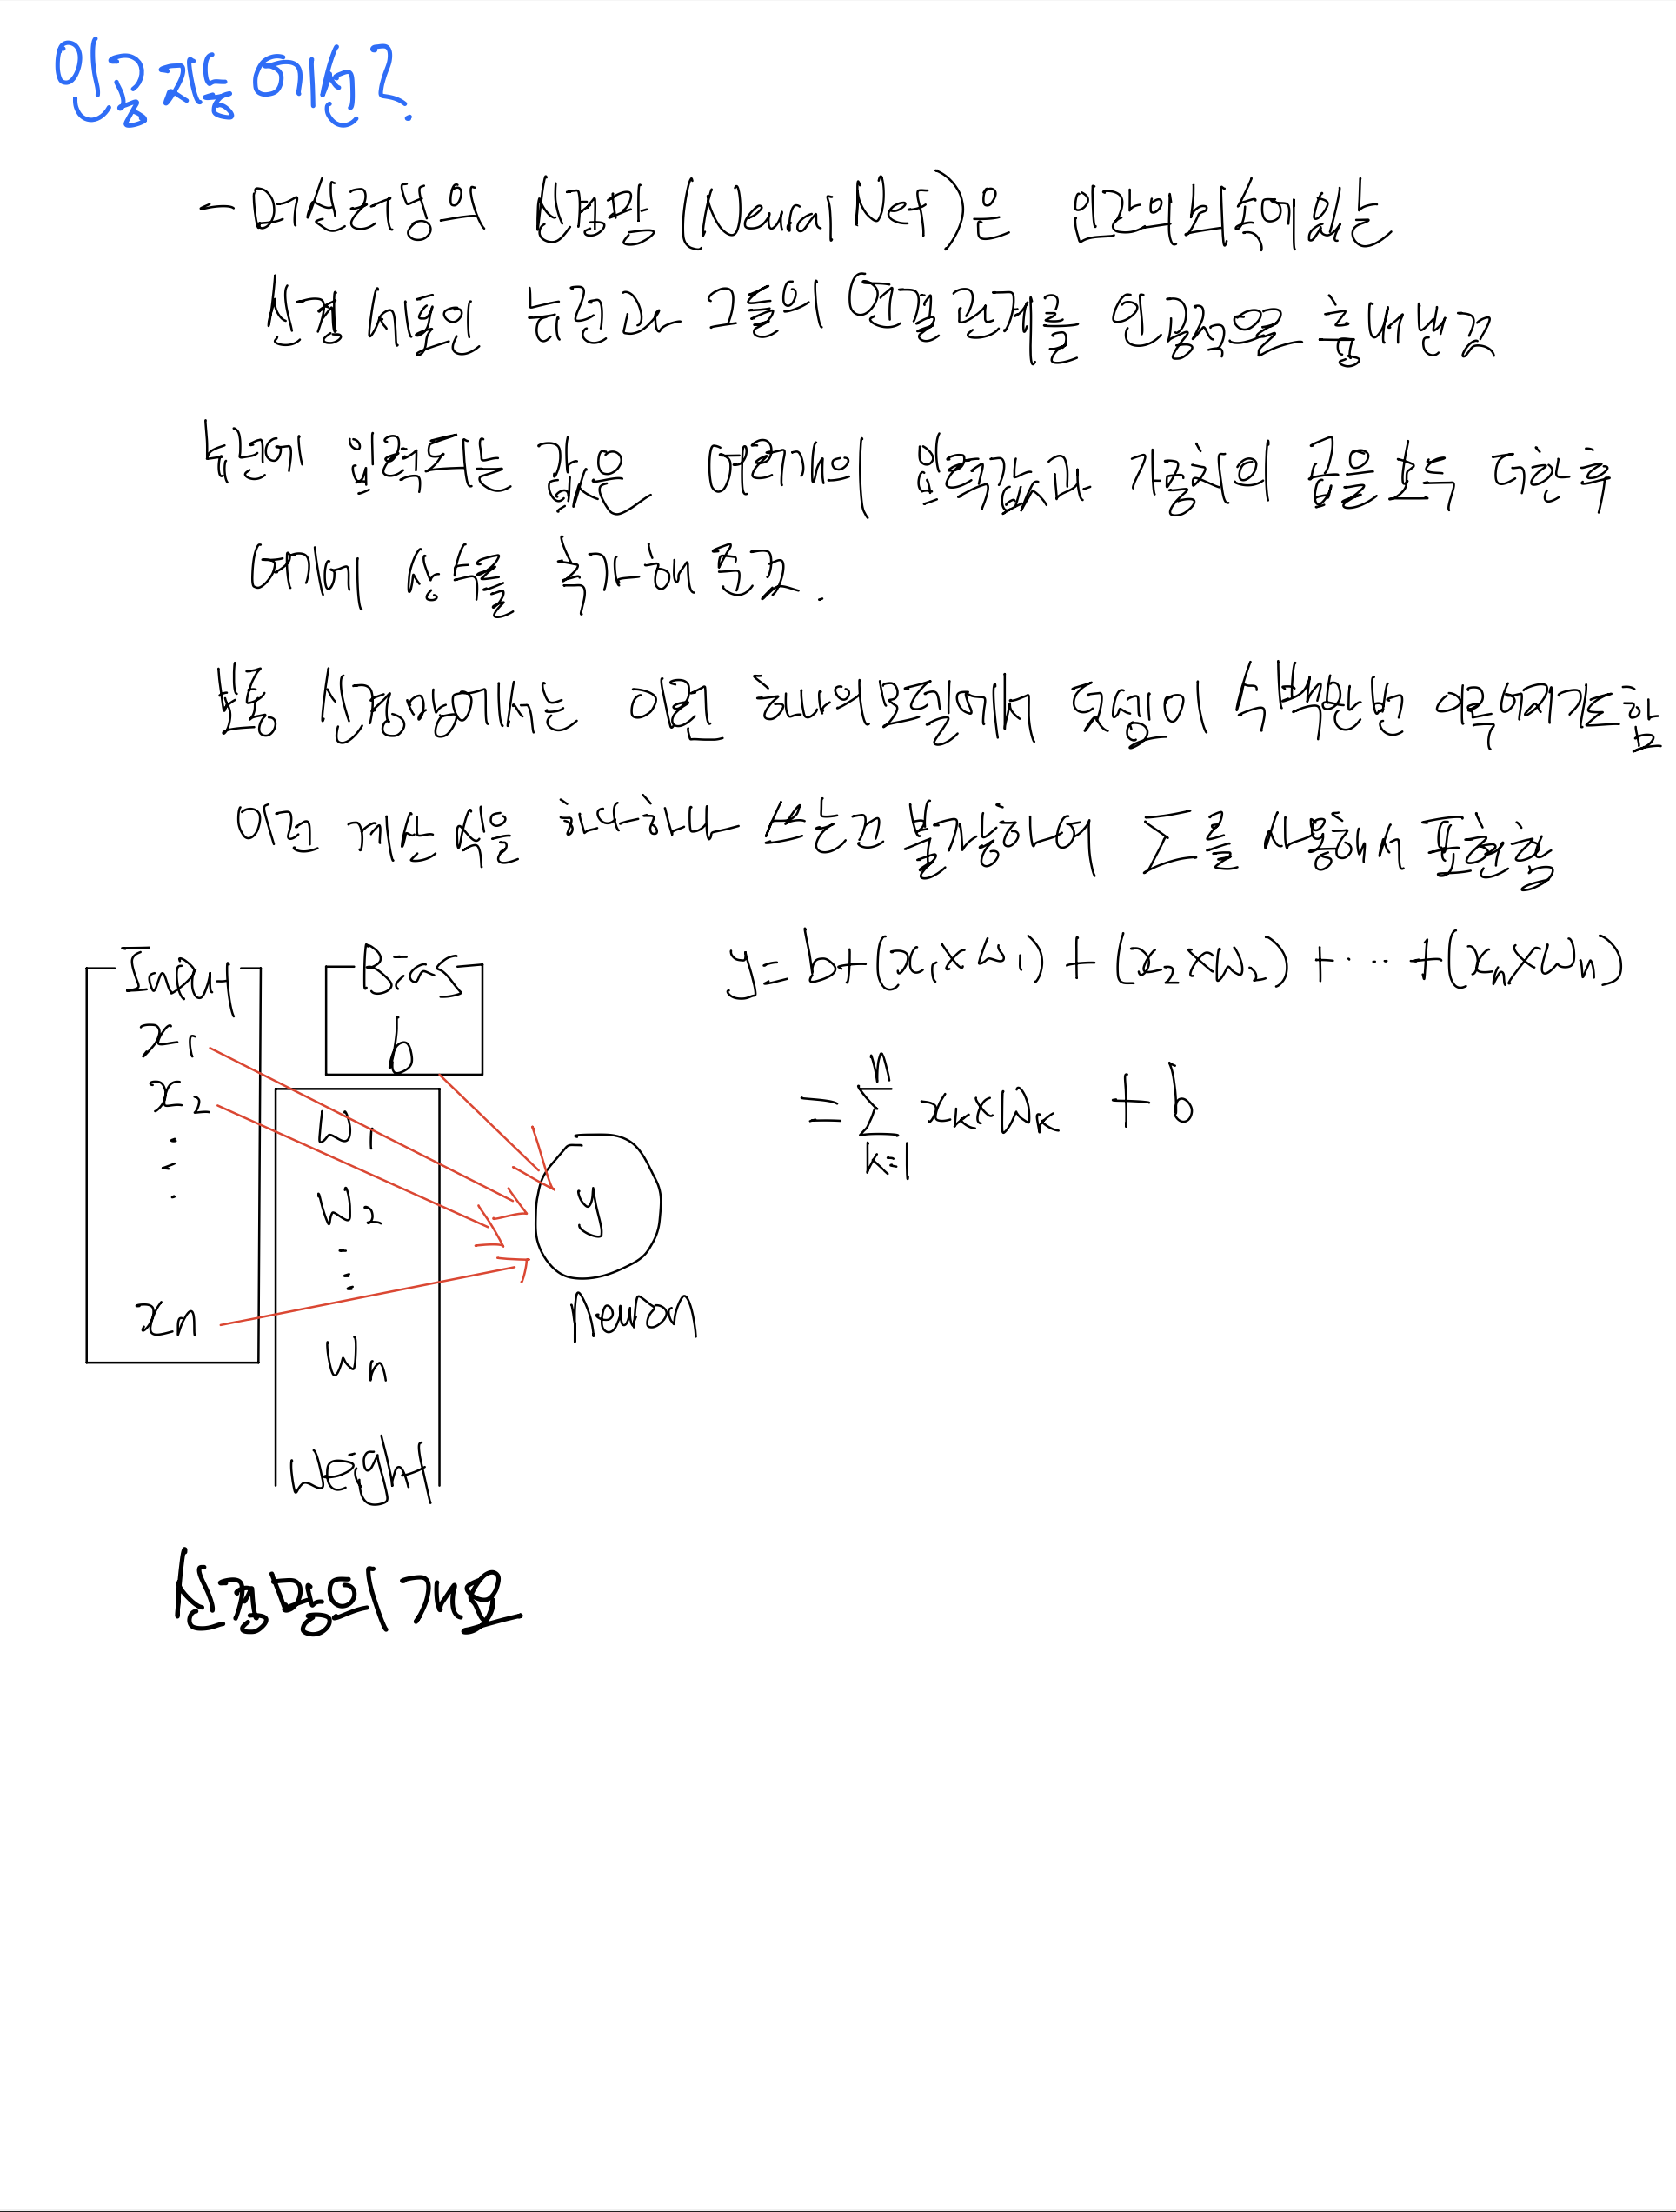 인공지능이란?
- 머신러닝의 신경망 (Neural Net)은 인간의 뇌 속에 있는
신경세포인 뉴런과 그들의 연결관계를 인공적으로 흉내낸것
뉴런에 입력되는 값은 여러개의 입력값과 가중치의 곱을 모두 더한 후
여기에 상수를 추가해 준것.
보통 신경망에서는 이런 하나의 모델에서 덧셈이 수백만번 이루어지기도함
이런 계산식을 하나하나 쓰는건 불가능하여 Σ를 사용해서 표현을
Input
x₁
x₂
⋮
xn
Bias
b
W₁
W₂
⋮
Wn
Weight
y
neuron
y = b + (x₁×W₁) + (x₂×W₂) + ⋯ + (xn×Wn)
= Σ n k=1 xk×Wk + b
신경망의 개요